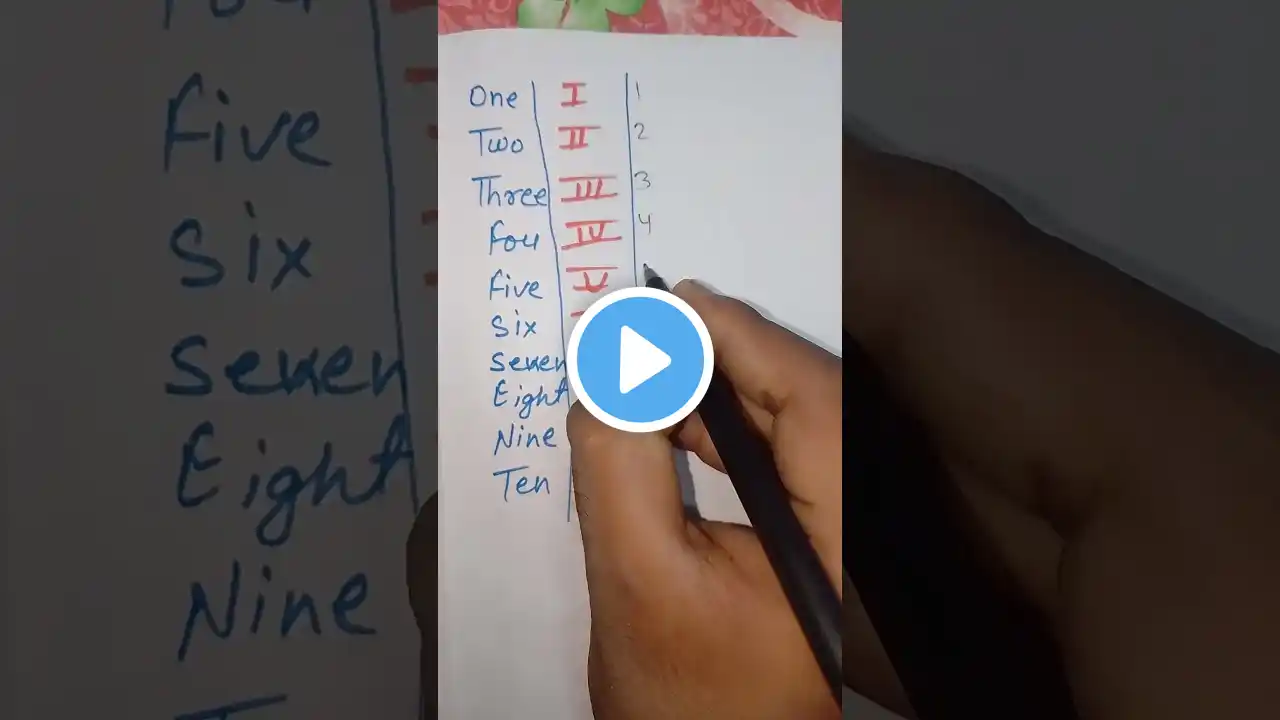 One I 1
Two II 2
Three III 3
Four IV 4
Five V
Six
Seven
Eight
Nine
Ten